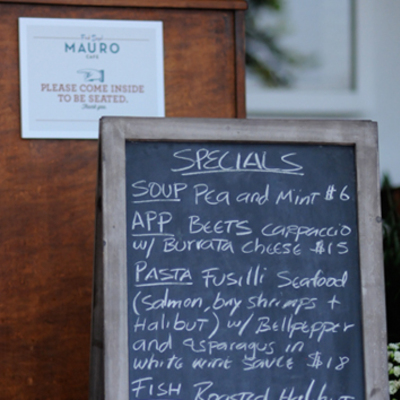 Fred Segal
MAURO
CAFE
PLEASE COME INSIDE
TO BE SEATED.
Thank you.
SPECIALS
SOUP Pea and Mint $6
APP BEETS Carpaccio
w/ Burrata Cheese $15
PASTA Fusilli Seafood
(Salmon, bay shrimps +
Halibut) w/ Bellpepper
and asparagus in
white wine sauce $18
FISH Roasted Halibut